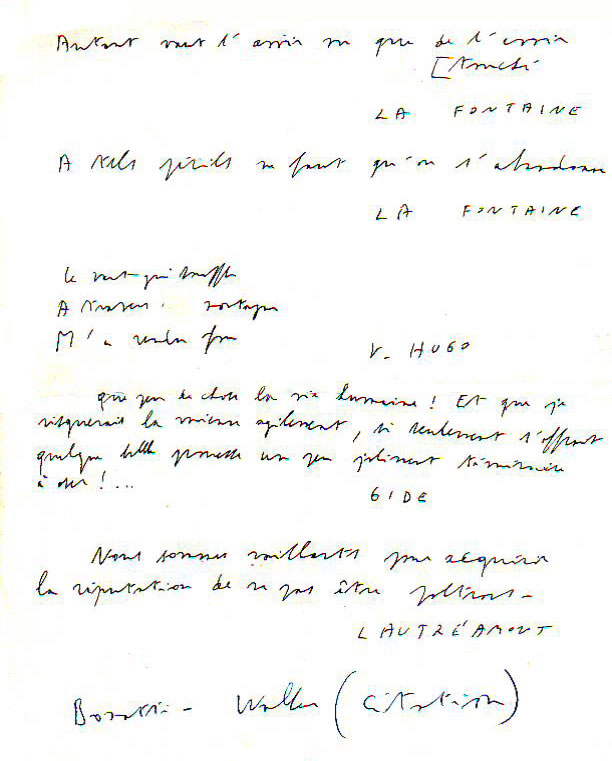 Autant vaut l'avoir vu que de l'avoir
[touché
LA FONTAINE
A tels périls ne faut qu'on s'abandonne
LA FONTAINE
Le vent qui souffle
A travers montagne
M'a rendu fou
V. HUGO
que peu de chose la vie humaine ! Et que je
risquerais la mienne agilement, si seulement s'offrait
quelque belle prouesse un peu joliment téméraire
à oser !...
GIDE
Nous sommes vaillants pour acquérir
la réputation de ne pas être poltrons -
LAUTRÉAMONT
Bonatti - Walker (citation)